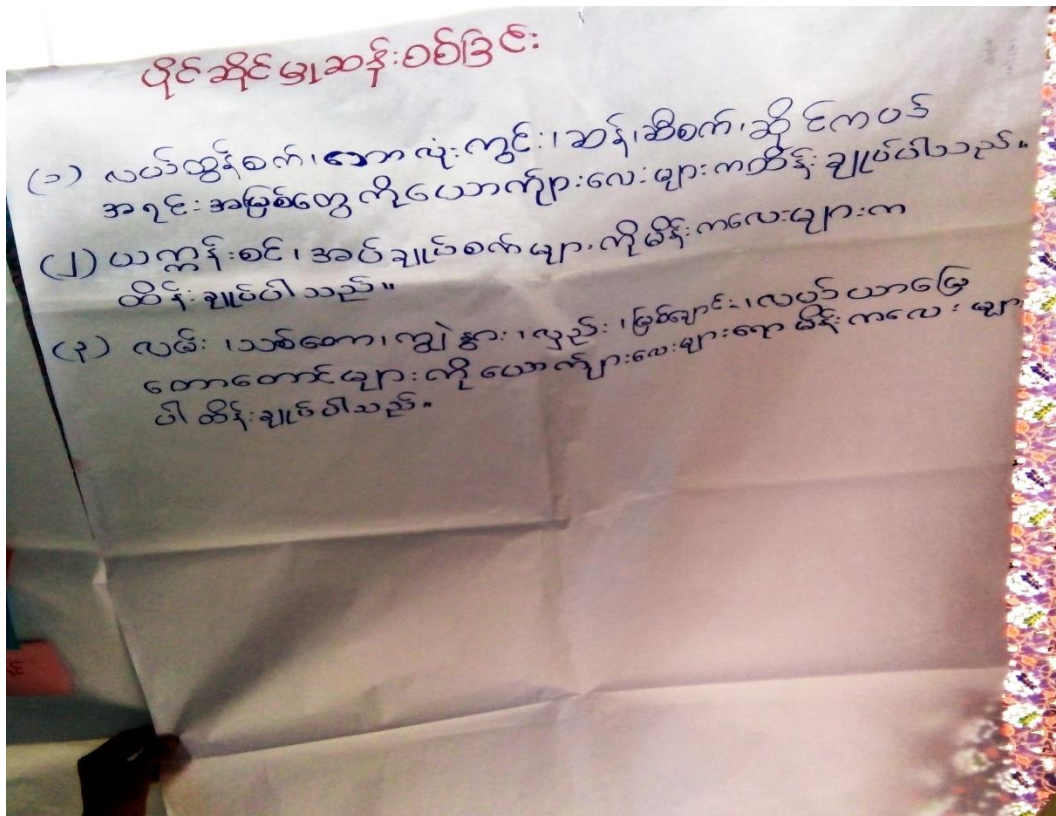 ပိုင်ဆိုင်မှုဆန်းစစ်ခြင်း
(၁) လယ်ထွန်စက်၊ ဘောလုံးကွင်း၊ ဆန်၊ ဆီစက်၊ ဆိုင်ကယ်
အရင်းအမြစ်တွေကိုယောကျ်ားလေးများကထိန်းချုပ်ပါသည်။
(၂) ယက္ကန်းစင်၊ အပ်ချုပ်စက်များ ကိုမိန်းကလေးများက
ထိန်းချုပ်ပါသည်။
(၃) လမ်း၊ သစ်တော၊ ကျွဲနွား၊ လှည်း၊ မြစ်ချောင်း၊ လယ်ယာမြေ
တောတောင်များကိုယောကျ်ားလေးများရော မိန်းကလေးများ
ပါ ထိန်းချုပ်ပါသည်။